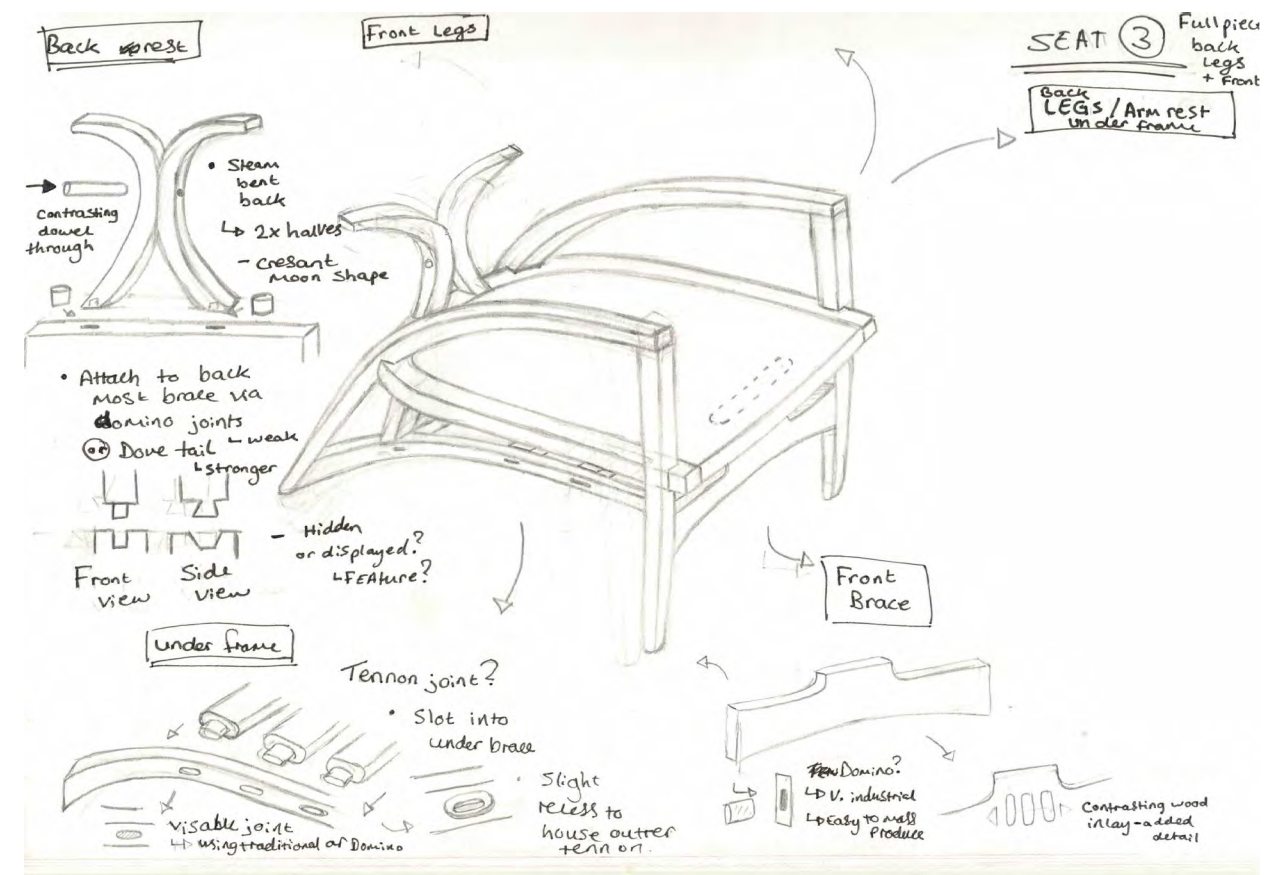 Back rest
Front Legs
SEAT 3
Full piece
back
Legs
+ Front
Back
LEGS/Arm rest
under frame
• Steam
bent
back
↳ 2x halves
- cresant
moon shape
contrasting
dowel
through
• Attach to back
most brace via
domino joints
↳ weak
or Dove tail
↳ stronger
Front
view
Side
view
- Hidden
or displayed?
↳ FEAture?
Front
Brace
under frame
Tennon joint?
• Slot into
under brace
• Slight
recess to
house outter
tenn on.
visable joint
↳ using traditional or Domino
Domino?
↳ V. industrial
↳ Easy to mass
produce
Contrasting wood
inlay-added
detail